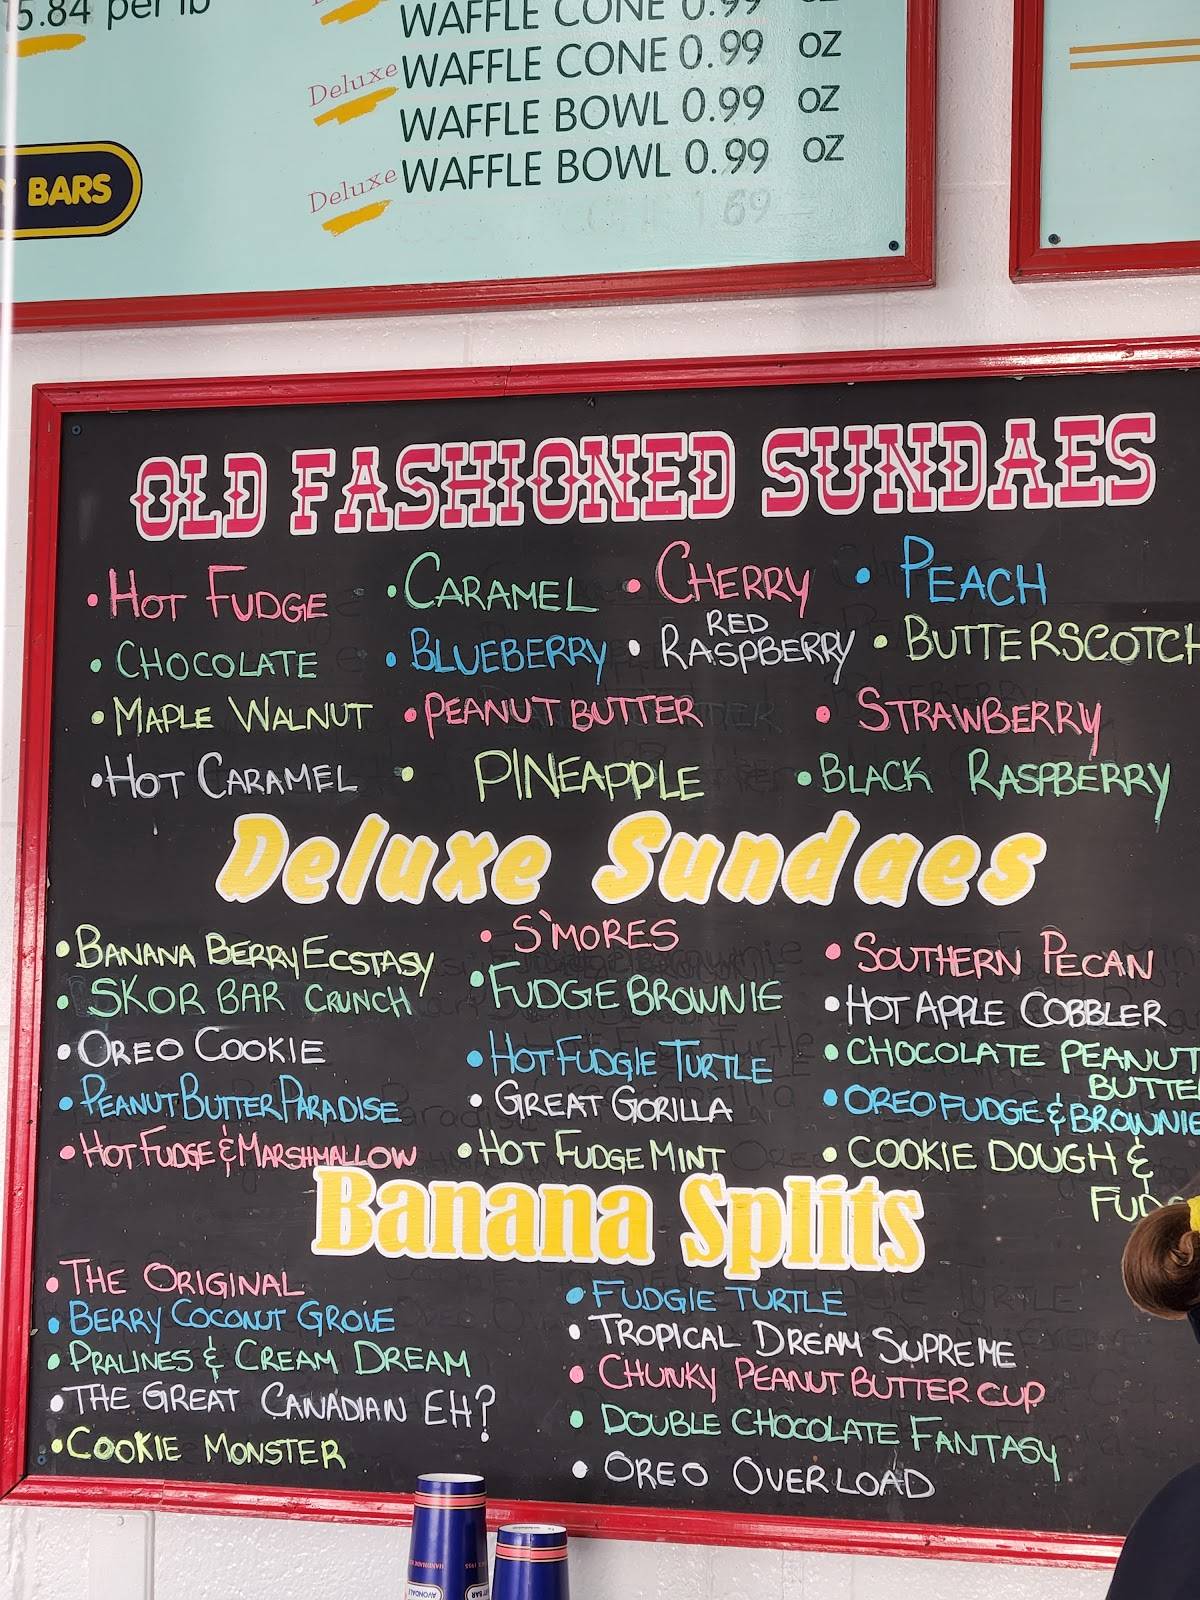 5.84 per lb
WAFFLE CONE 0.99 OZ
Deluxe WAFFLE CONE 0.99 OZ
WAFFLE BOWL 0.99 OZ
Deluxe WAFFLE BOWL 0.99 OZ
1 69
BARS
OLD FASHIONED SUNDAES
• HOT FUDGE • CARAMEL • CHERRY • PEACH
• CHOCOLATE • BLUEBERRY • RED RASPBERRY • BUTTERSCOTCH
• MAPLE WALNUT • PEANUT BUTTER • STRAWBERRY
• HOT CARAMEL • PINEAPPLE • BLACK RASPBERRY
Deluxe Sundaes
• BANANA BERRY ECSTASY • S'MORES • SOUTHERN PECAN
• SKOR BAR CRUNCH • FUDGE BROWNIE • HOT APPLE COBBLER
• OREO COOKIE • HOT FUDGE TURTLE • CHOCOLATE PEANUT
BUTTE
• PEANUT BUTTER PARADISE • GREAT GORILLA • OREO FUDGE & BROWNIE
• HOT FUDGE & MARSHMALLOW • HOT FUDGE MINT • COOKIE DOUGH &
FUDG
Banana Splits
• THE ORIGINAL • FUDGE TURTLE
• BERRY COCONUT GROVE • TROPICAL DREAM SUPREME
• PRALINES & CREAM DREAM • CHUNKY PEANUT BUTTER CUP
• THE GREAT CANADIAN EH? • DOUBLE CHOCOLATE FANTASY
• COOKIE MONSTER • OREO OVERLOAD
HANDMADE
SINCE 1955
AVONDALE
BAR